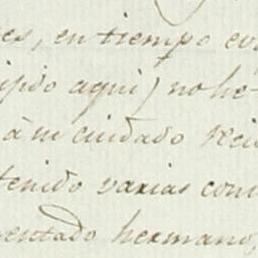 es, en tiempo
aqui) no he-
à m cuidado
tenido varias
hermano,